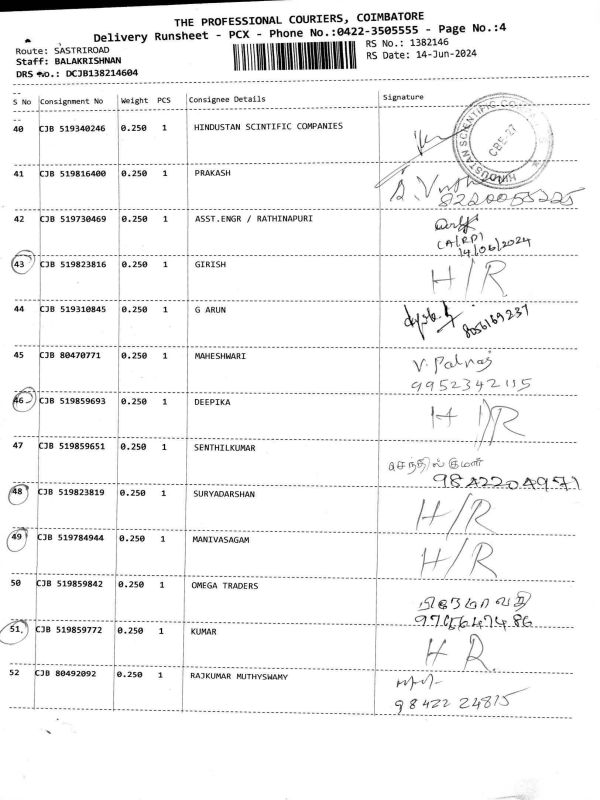 THE PROFESSIONAL COURIERS, COIMBATORE
Delivery Runsheet - PCX - Phone No.:0422-3505555 - Page No.:4
Route: SASTRIROAD
RS No.: 1382146
Staff: BALAKRISHNAN
RS Date: 14-Jun-2024
DRS No.: DCJB138214604
S No Consignment No Weight PCS Consignee Details Signature
40 CJB 519340246 0.250 1 HINDUSTAN SCINTIFIC COMPANIES
HINDUSTAN SCIENTIFIC
CBE-27
41 CJB 519816400 0.250 1 PRAKASH
8220055225
42 CJB 519730469 0.250 1 ASST.ENGR / RATHINAPURI
(A/RP)
14/06/2024
43 CJB 519823816 0.250 1 GIRISH H/R
44 CJB 519310845 0.250 1 G ARUN
8056169237
45 CJB 80470771 0.250 1 MAHESHWARI V. Palraj
9952342115
46 CJB 519859693 0.250 1 DEEPIKA H/R
47 CJB 519859651 0.250 1 SENTHILKUMAR செந்தில்குமார்
9842204971
48 CJB 519823819 0.250 1 SURYADARSHAN H/R
49 CJB 519784944 0.250 1 MANIVASAGAM H/R
50 CJB 519859842 0.250 1 OMEGA TRADERS
51 CJB 519859772 0.250 1 KUMAR H R
52 CJB 80492092 0.250 1 RAJKUMAR MUTHYSWAMY
98422 24815